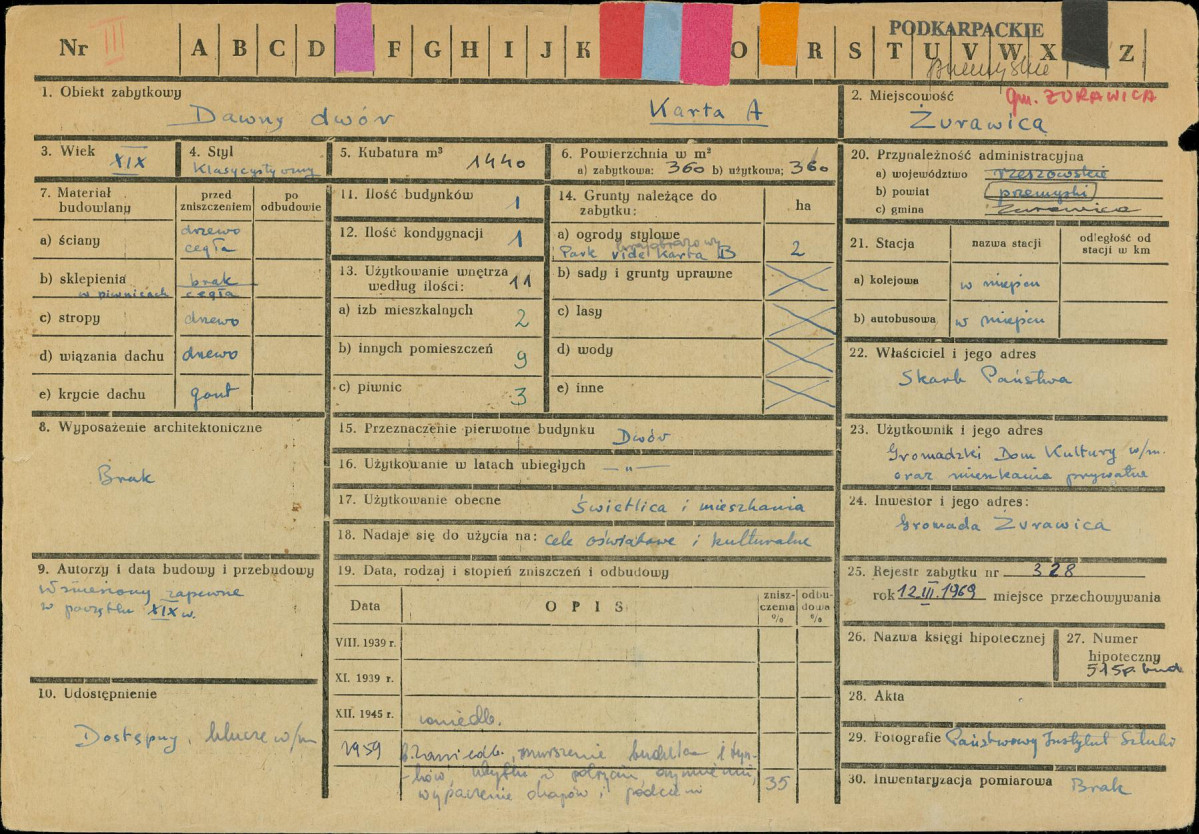 PODKARPACKIE
Nr III A B C D F G H I J K O R S T U V W X Z
przemyskie
1. Obiekt zabytkowy
Dawny dwór Karta A
2. Miejscowość gm. ŻURAWICA
Żurawica
3. Wiek XIX
4. Styl Klasycystyczny
5. Kubatura m³ 1440
6. Powierzchnia w m²
a) zabytkowa: 360 b) użytkowa; 360
20. Przynależność administracyjna
a) województwo rzeszowskie
b) powiat przemyski
c) gmina Żurawica
7. Materiał budowlany
przed zniszczeniem
po odbudowie
a) ściany drzewo cegła
b) sklepienia brak
w piwnicach cegła
c) stropy drzewo
d) wiązania dachu drzewo
e) krycie dachu gont
11. Ilość budynków 1
12. Ilość kondygnacji 1
13. Użytkowanie wnętrza według ilości: 11
a) izb mieszkalnych 2
b) innych pomieszczeń 9
c) piwnic 3
14. Grunty należące do zabytku:
ha
a) ogrody stylowe
krajobrazowy
Park vide Karta B 2
b) sady i grunty uprawne
c) lasy
d) wody
e) inne
21. Stacja
nazwa stacji
odległość od stacji w km
a) kolejowa w miejscu
b) autobusowa w miejscu
22. Właściciel i jego adres
Skarb Państwa
8. Wyposażenie architektoniczne
Brak
15. Przeznaczenie pierwotne budynku Dwór
16. Użytkowanie w latach ubiegłych — „ —
17. Użytkowanie obecne Świetlica i mieszkania
18. Nadaje się do użycia na: cele oświatowe i kulturalne
23. Użytkownik i jego adres
Gromadzki Dom Kultury w/m.
oraz mieszkania prywatne
24. Inwestor i jego adres:
Gromada Żurawica
9. Autorzy i data budowy i przebudowy
Wzniesiony zapewne
w początku XIX w.
19. Data, rodzaj i stopień zniszczeń i odbudowy
Data
OPIS
znisz-czenia %
odbu-dowa %
VIII. 1939 r.
XI. 1939 r.
XII. 1945 r. zaniedb.
1959 zaniedb., zmurszenie budulca i tyn-
ków, ubytki w pokryciu,
wypaczenie okapów i podcieni 35
25. Rejestr zabytku nr 328
rok 12.III.1969 miejsce przechowywania
26. Nazwa księgi hipotecznej
27. Numer hipoteczny
515p. bud
10. Udostępnienie
Dostępny, klucze w/m
28. Akta
29. Fotografie Państwowy Instytut Sztuki
30. Inwentaryzacja pomiarowa Brak